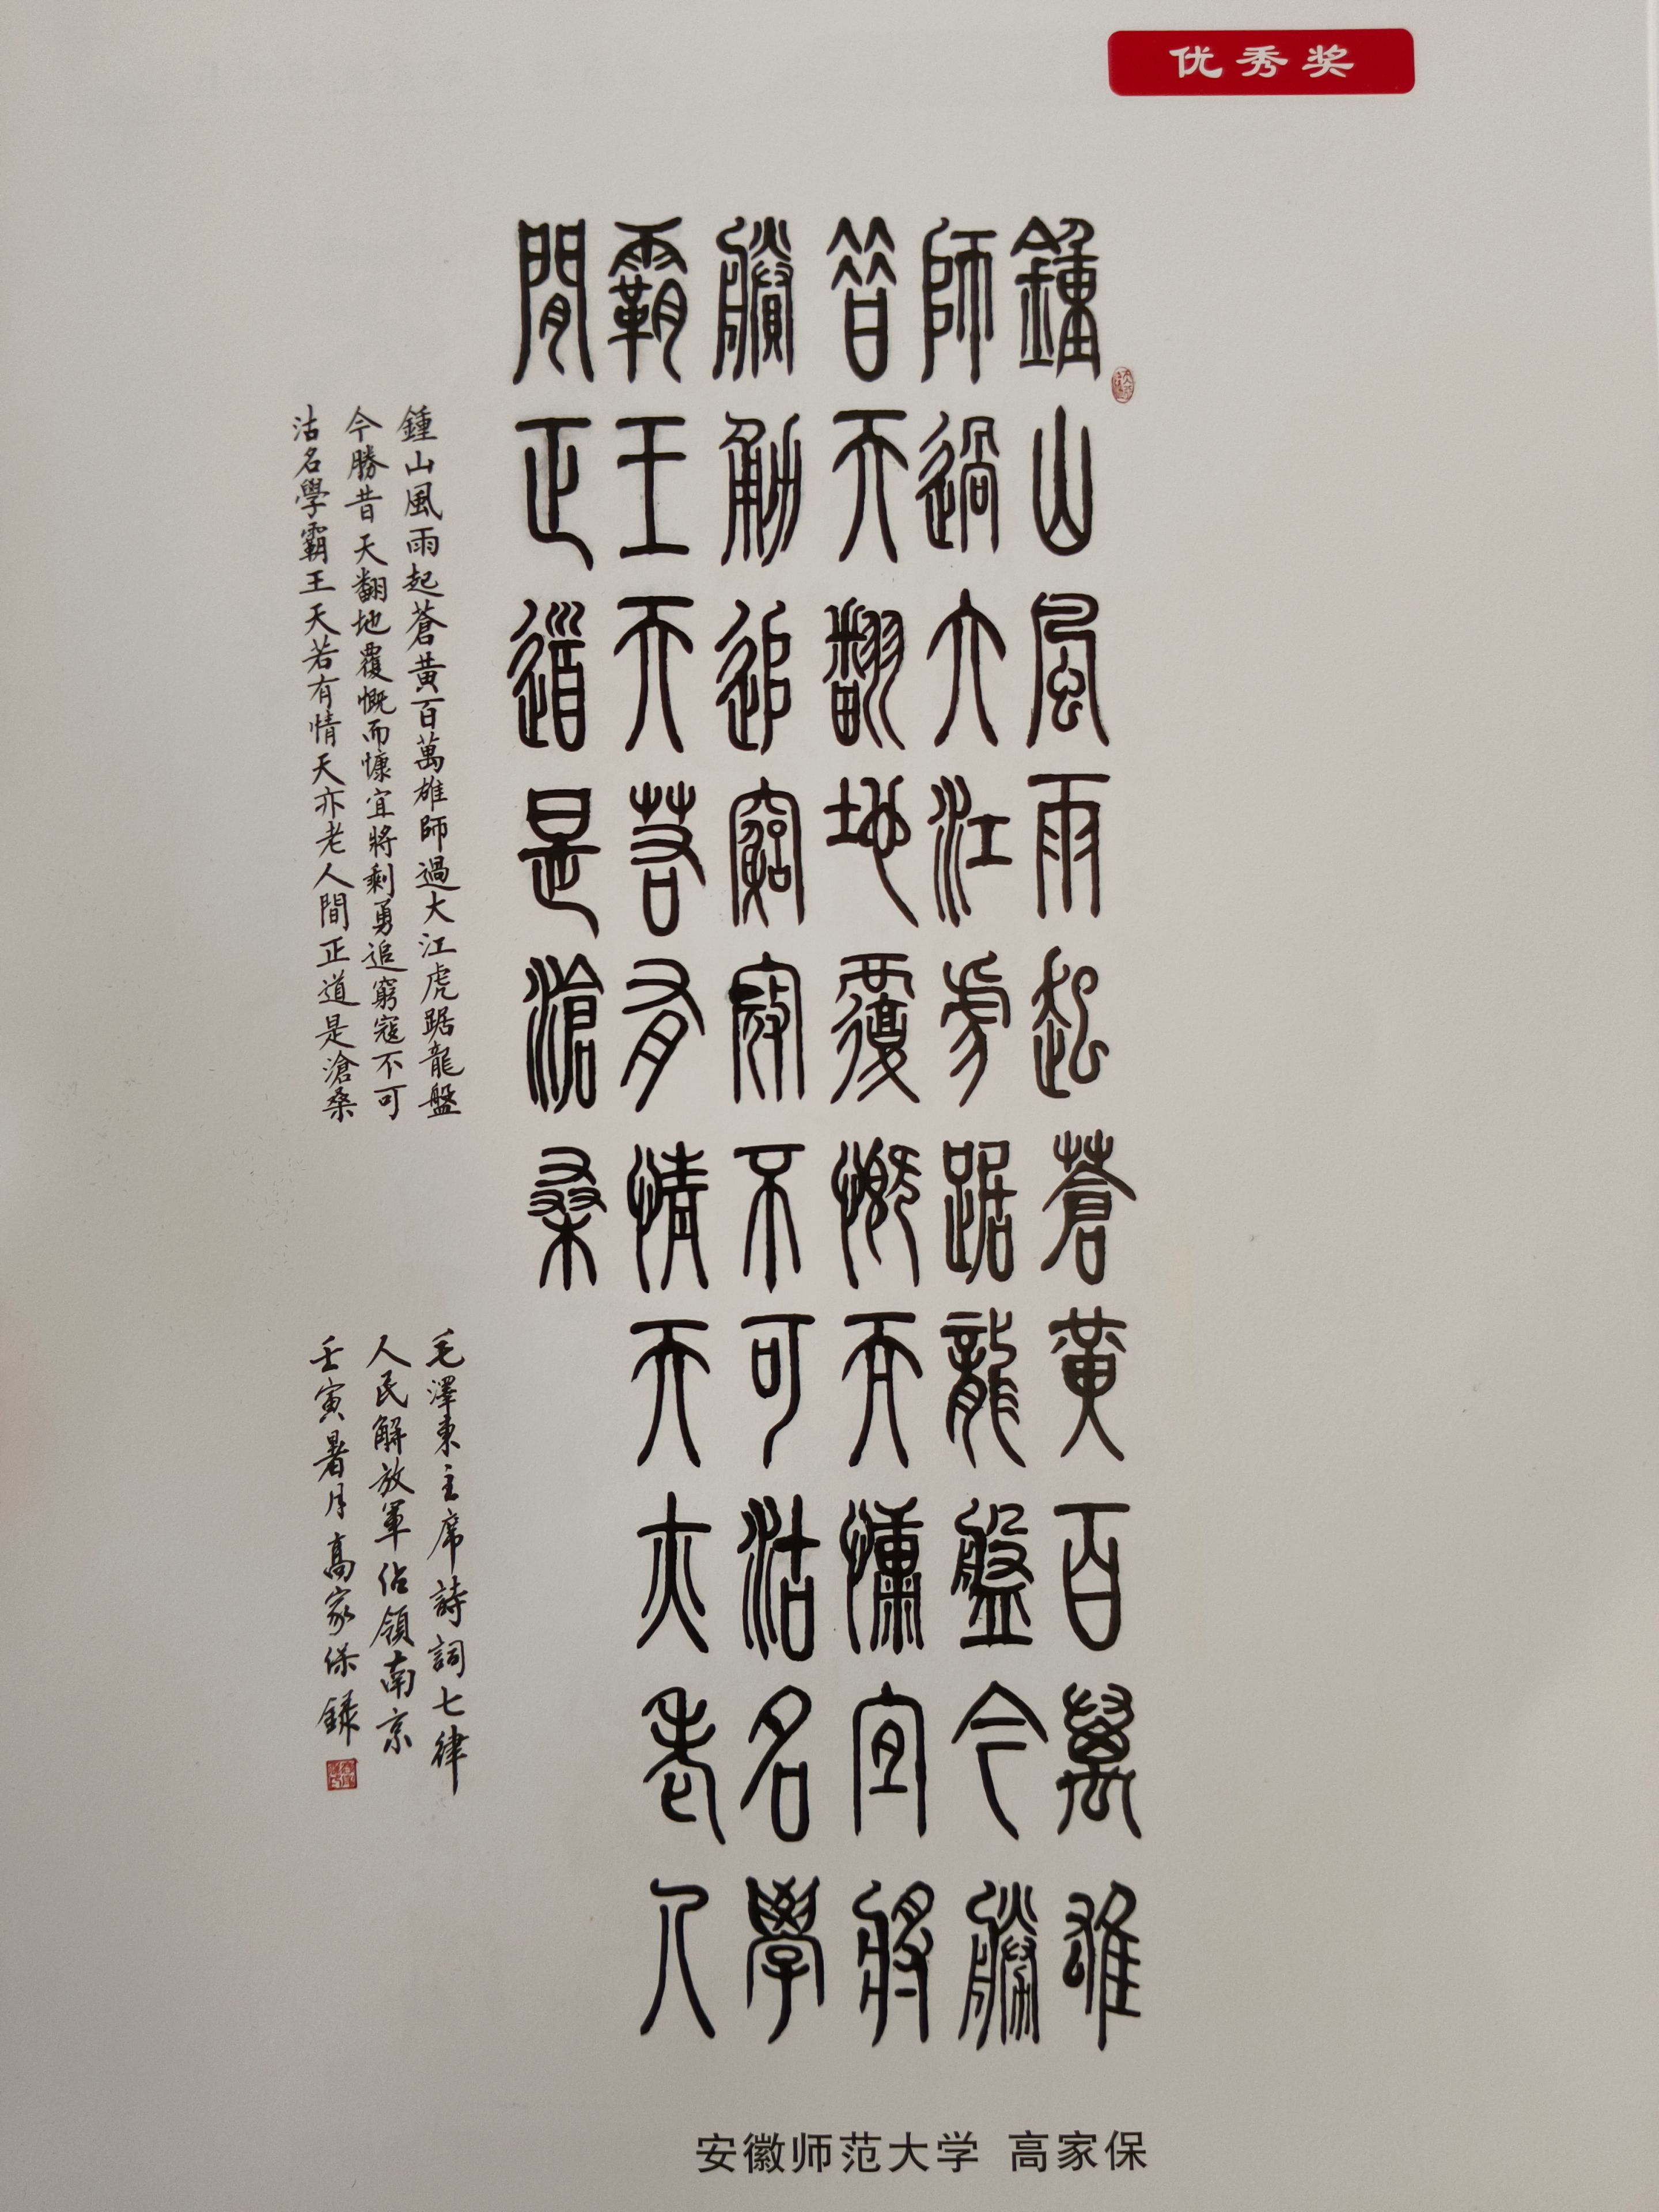 优秀奖
鍾山風雨起蒼黃百萬雄
師過大江虎踞龍盤今勝
昔天翻地覆慨而慷宜將
賸勇追窮寇不可沽名學
霸王天若有情天亦老人
間正道是滄桑
鍾山風雨起蒼黃百萬雄師過大江虎踞龍盤
今勝昔天翻地覆慨而慷宜將剩勇追窮寇不可
沽名學霸王天若有情天亦老人間正道是滄桑
毛澤東主席詩詞七律
人民解放軍佔領南京
壬寅暑月高家保錄
安徽师范大学 高家保